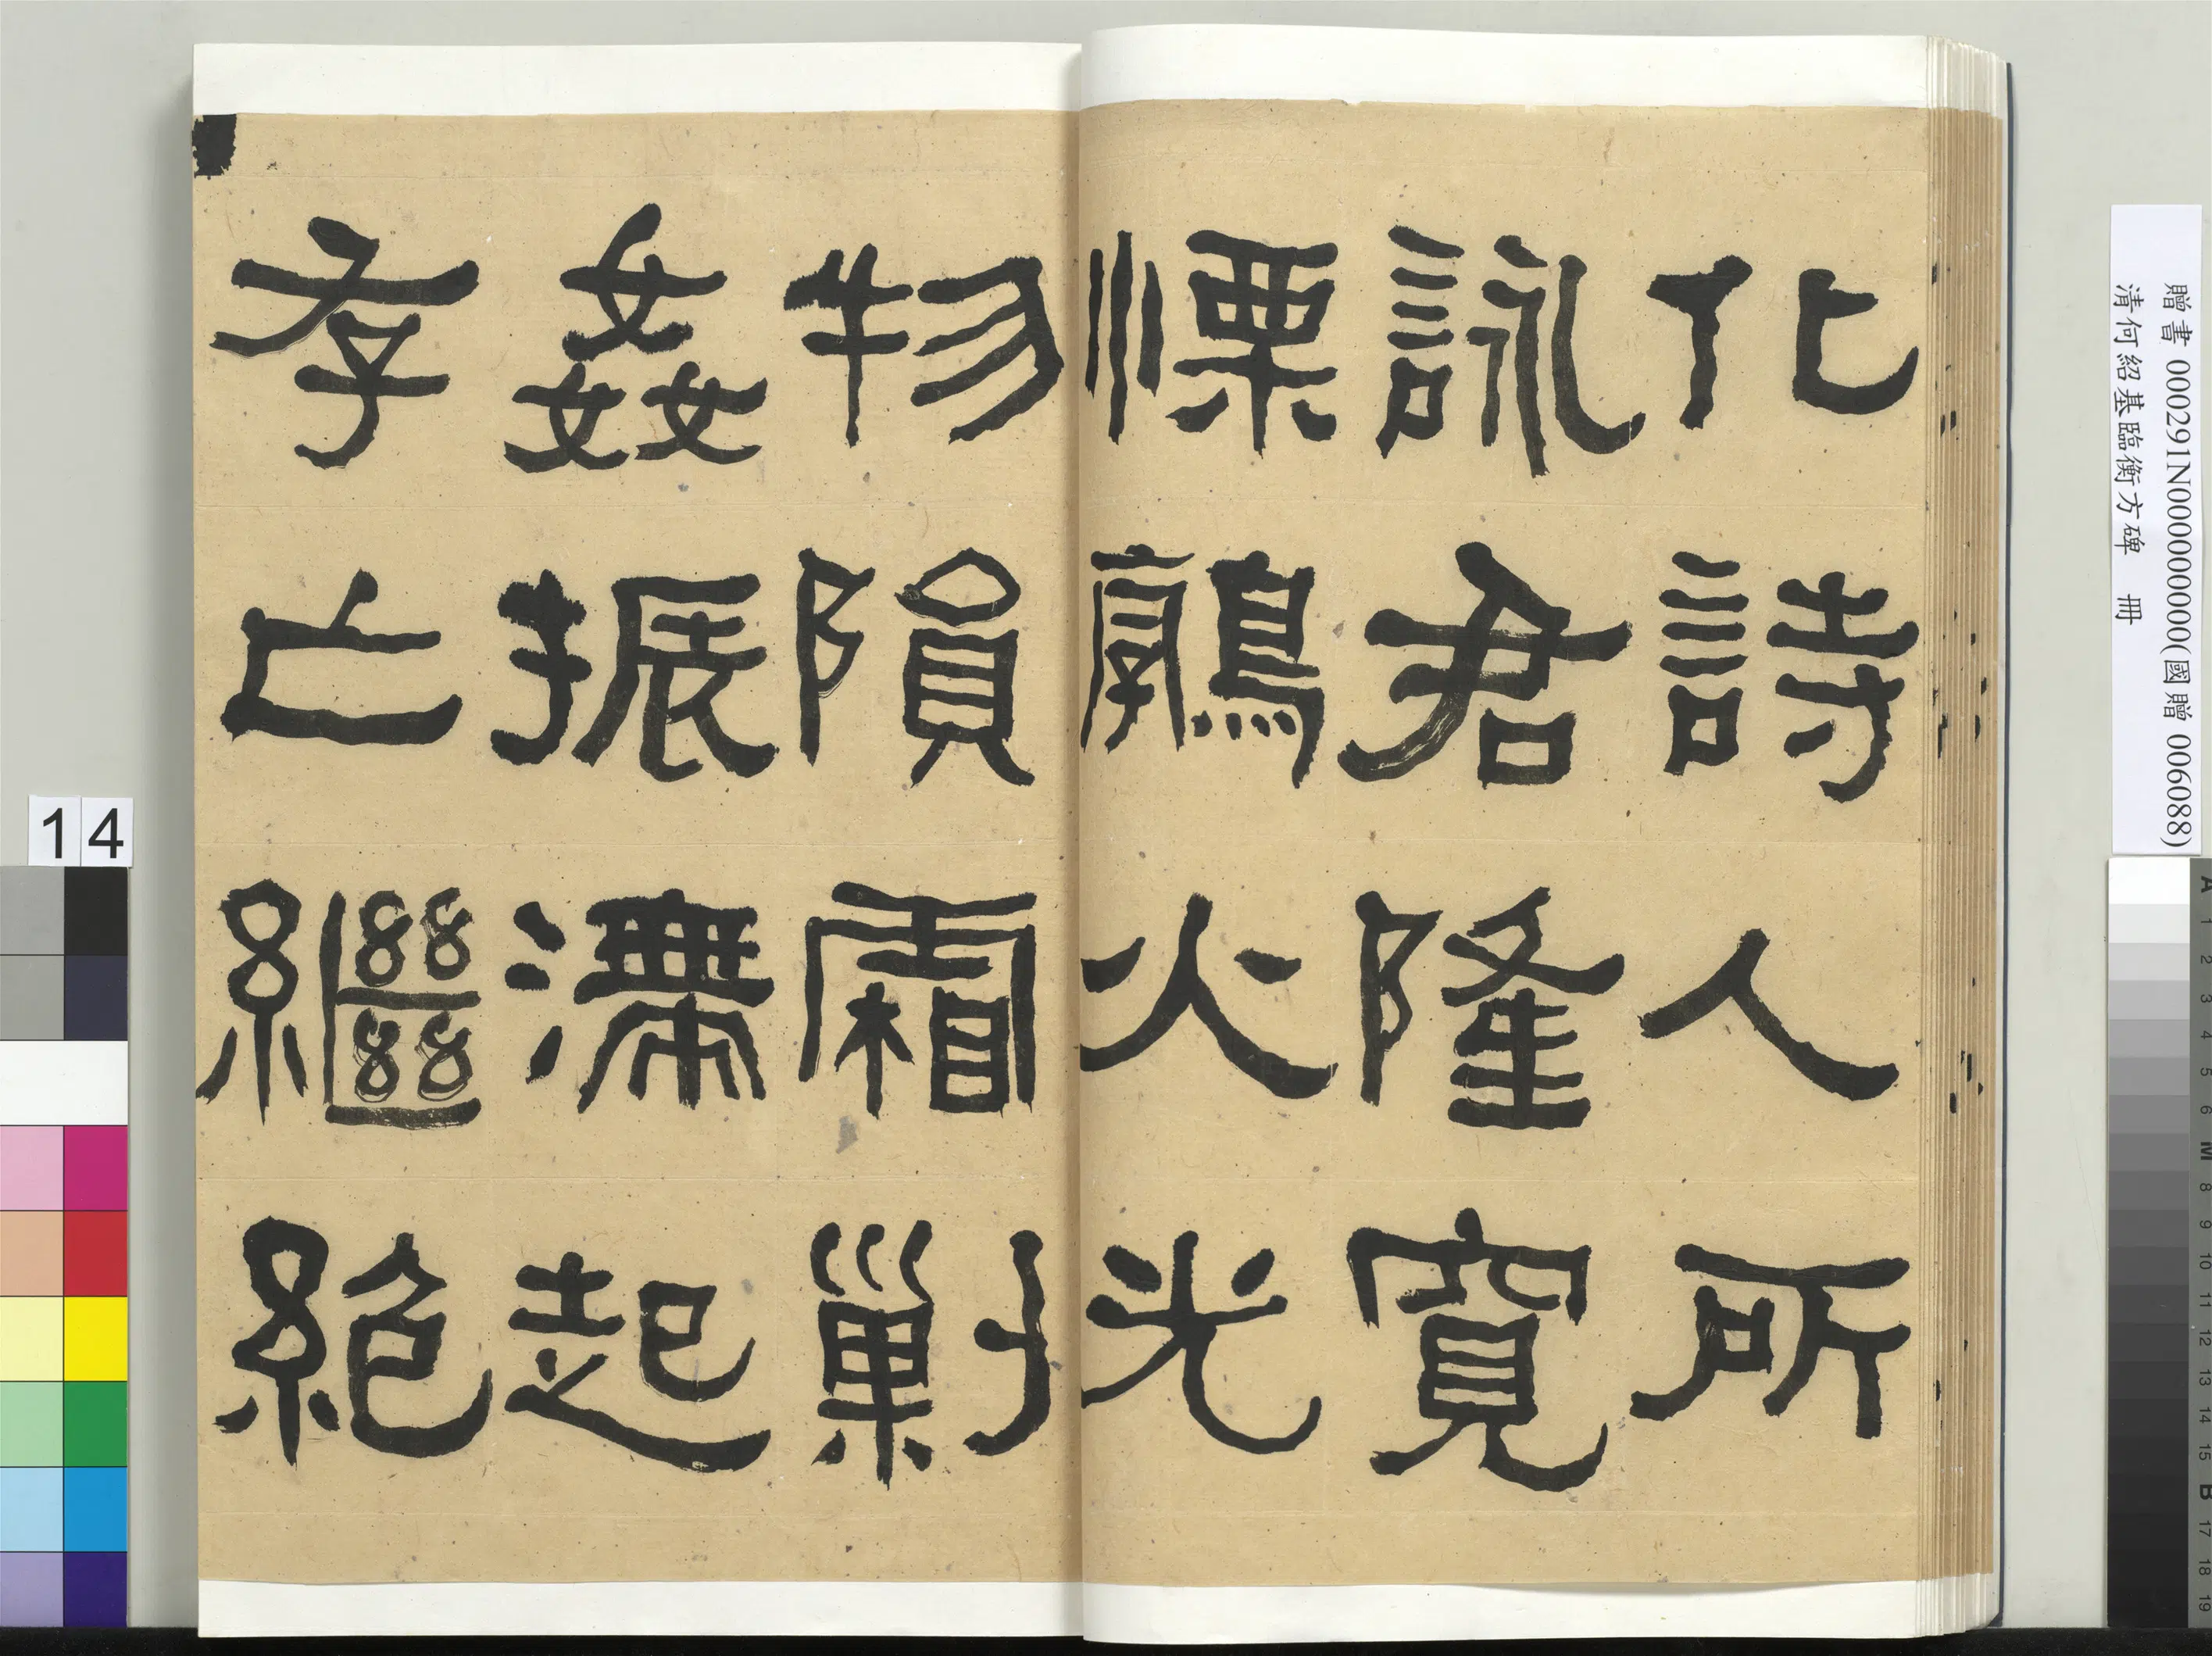 化詩人所
詠君隆寬
慄鶉火光
物隕霜剿
姦振滯起
存亡繼絕
贈書 000291N000000000(國贈 006088)
清何紹基臨衡方碑 冊
14
A 1 2 3 4 5 6 M 8 9 10 11 12 13 14 15 B 17 18 19